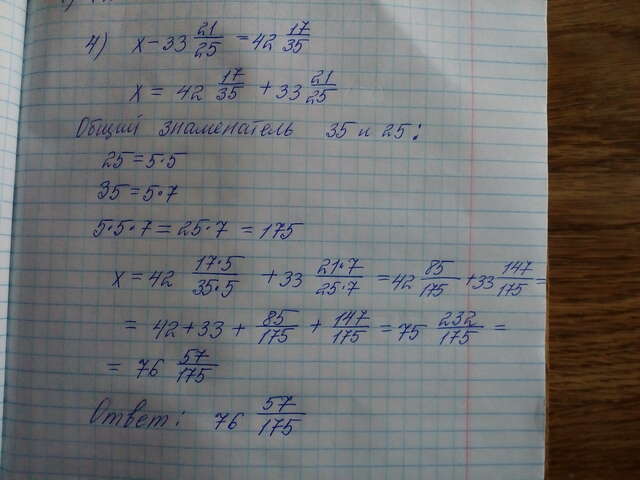 4) x - 33 21/25 = 42 17/35
x = 42 17/35 + 33 21/25
Общий знаменатель 35 и 25:
25 = 5·5
35 = 5·7
5·5·7 = 25·7 = 175
x = 42 17·5/35·5 + 33 21·7/25·7 = 42 85/175 + 33 147/175 =
= 42 + 33 + 85/175 + 147/175 = 75 232/175 =
= 76 57/175
Ответ: 76 57/175